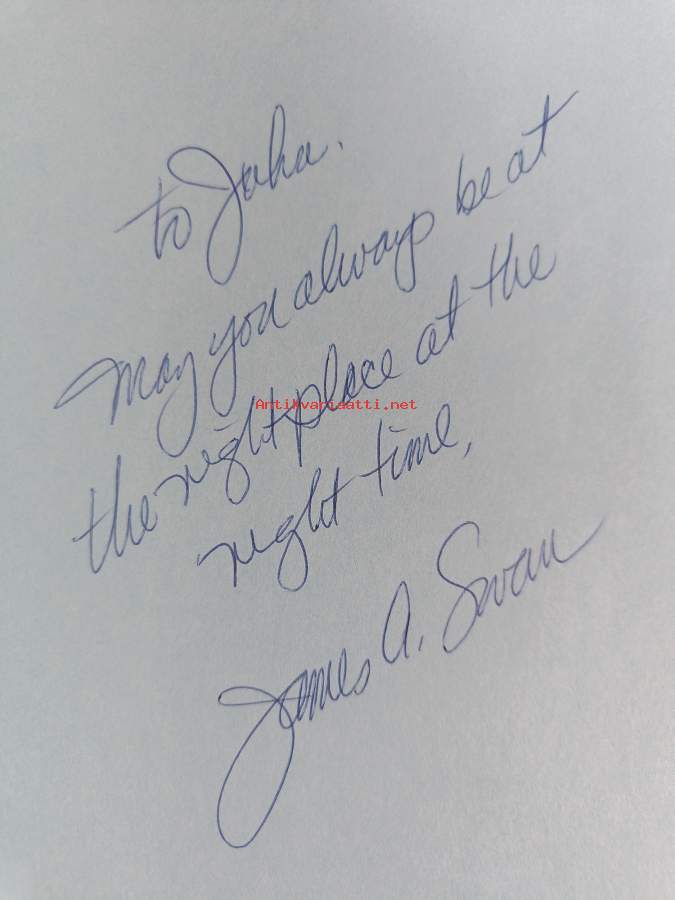 to Juha.
May you always be at
the right place at the
Antikvariaatti.net
right time,
James A. Swan